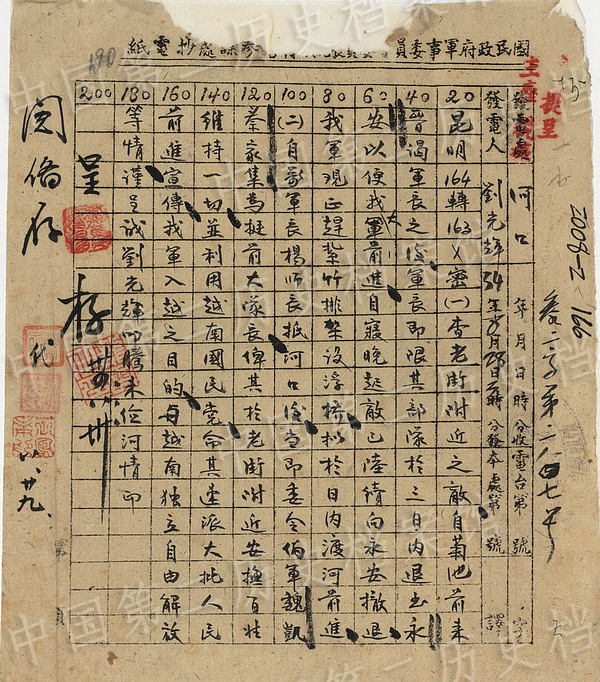 國民政府軍事委員
參謀處抄電紙
2008-2 166
發電處 河口 年 月 日 時 分收電台第 號
發電人 劉光 34年8月28日 時 分發本處第 號 譯
20 昆明164轉163X密(一)老街附近之敵自菊池前来
40 晉謁軍長之後軍長即限其部隊於三日內退出永
60 安以便我軍前進自寢晚起敵已陸續向永安撤退
80 我軍現正趕紮竹排架设浮橋擬於日內渡河前進
100 (二)自軍長楊师長抵河口後当即委令偽軍魏凱
120 蔡家集為挺前大隊長俾其於老街附近安撫百姓
140 維持一切並利用越南國民党命其派大批人民
160 前進宣傳我軍入越之目的為越南独立自由解放
180 等情謹呈誠劉光叩未儉河情印
200 呈
存
閱備存
代
八、廿九
中国第二历史档案馆